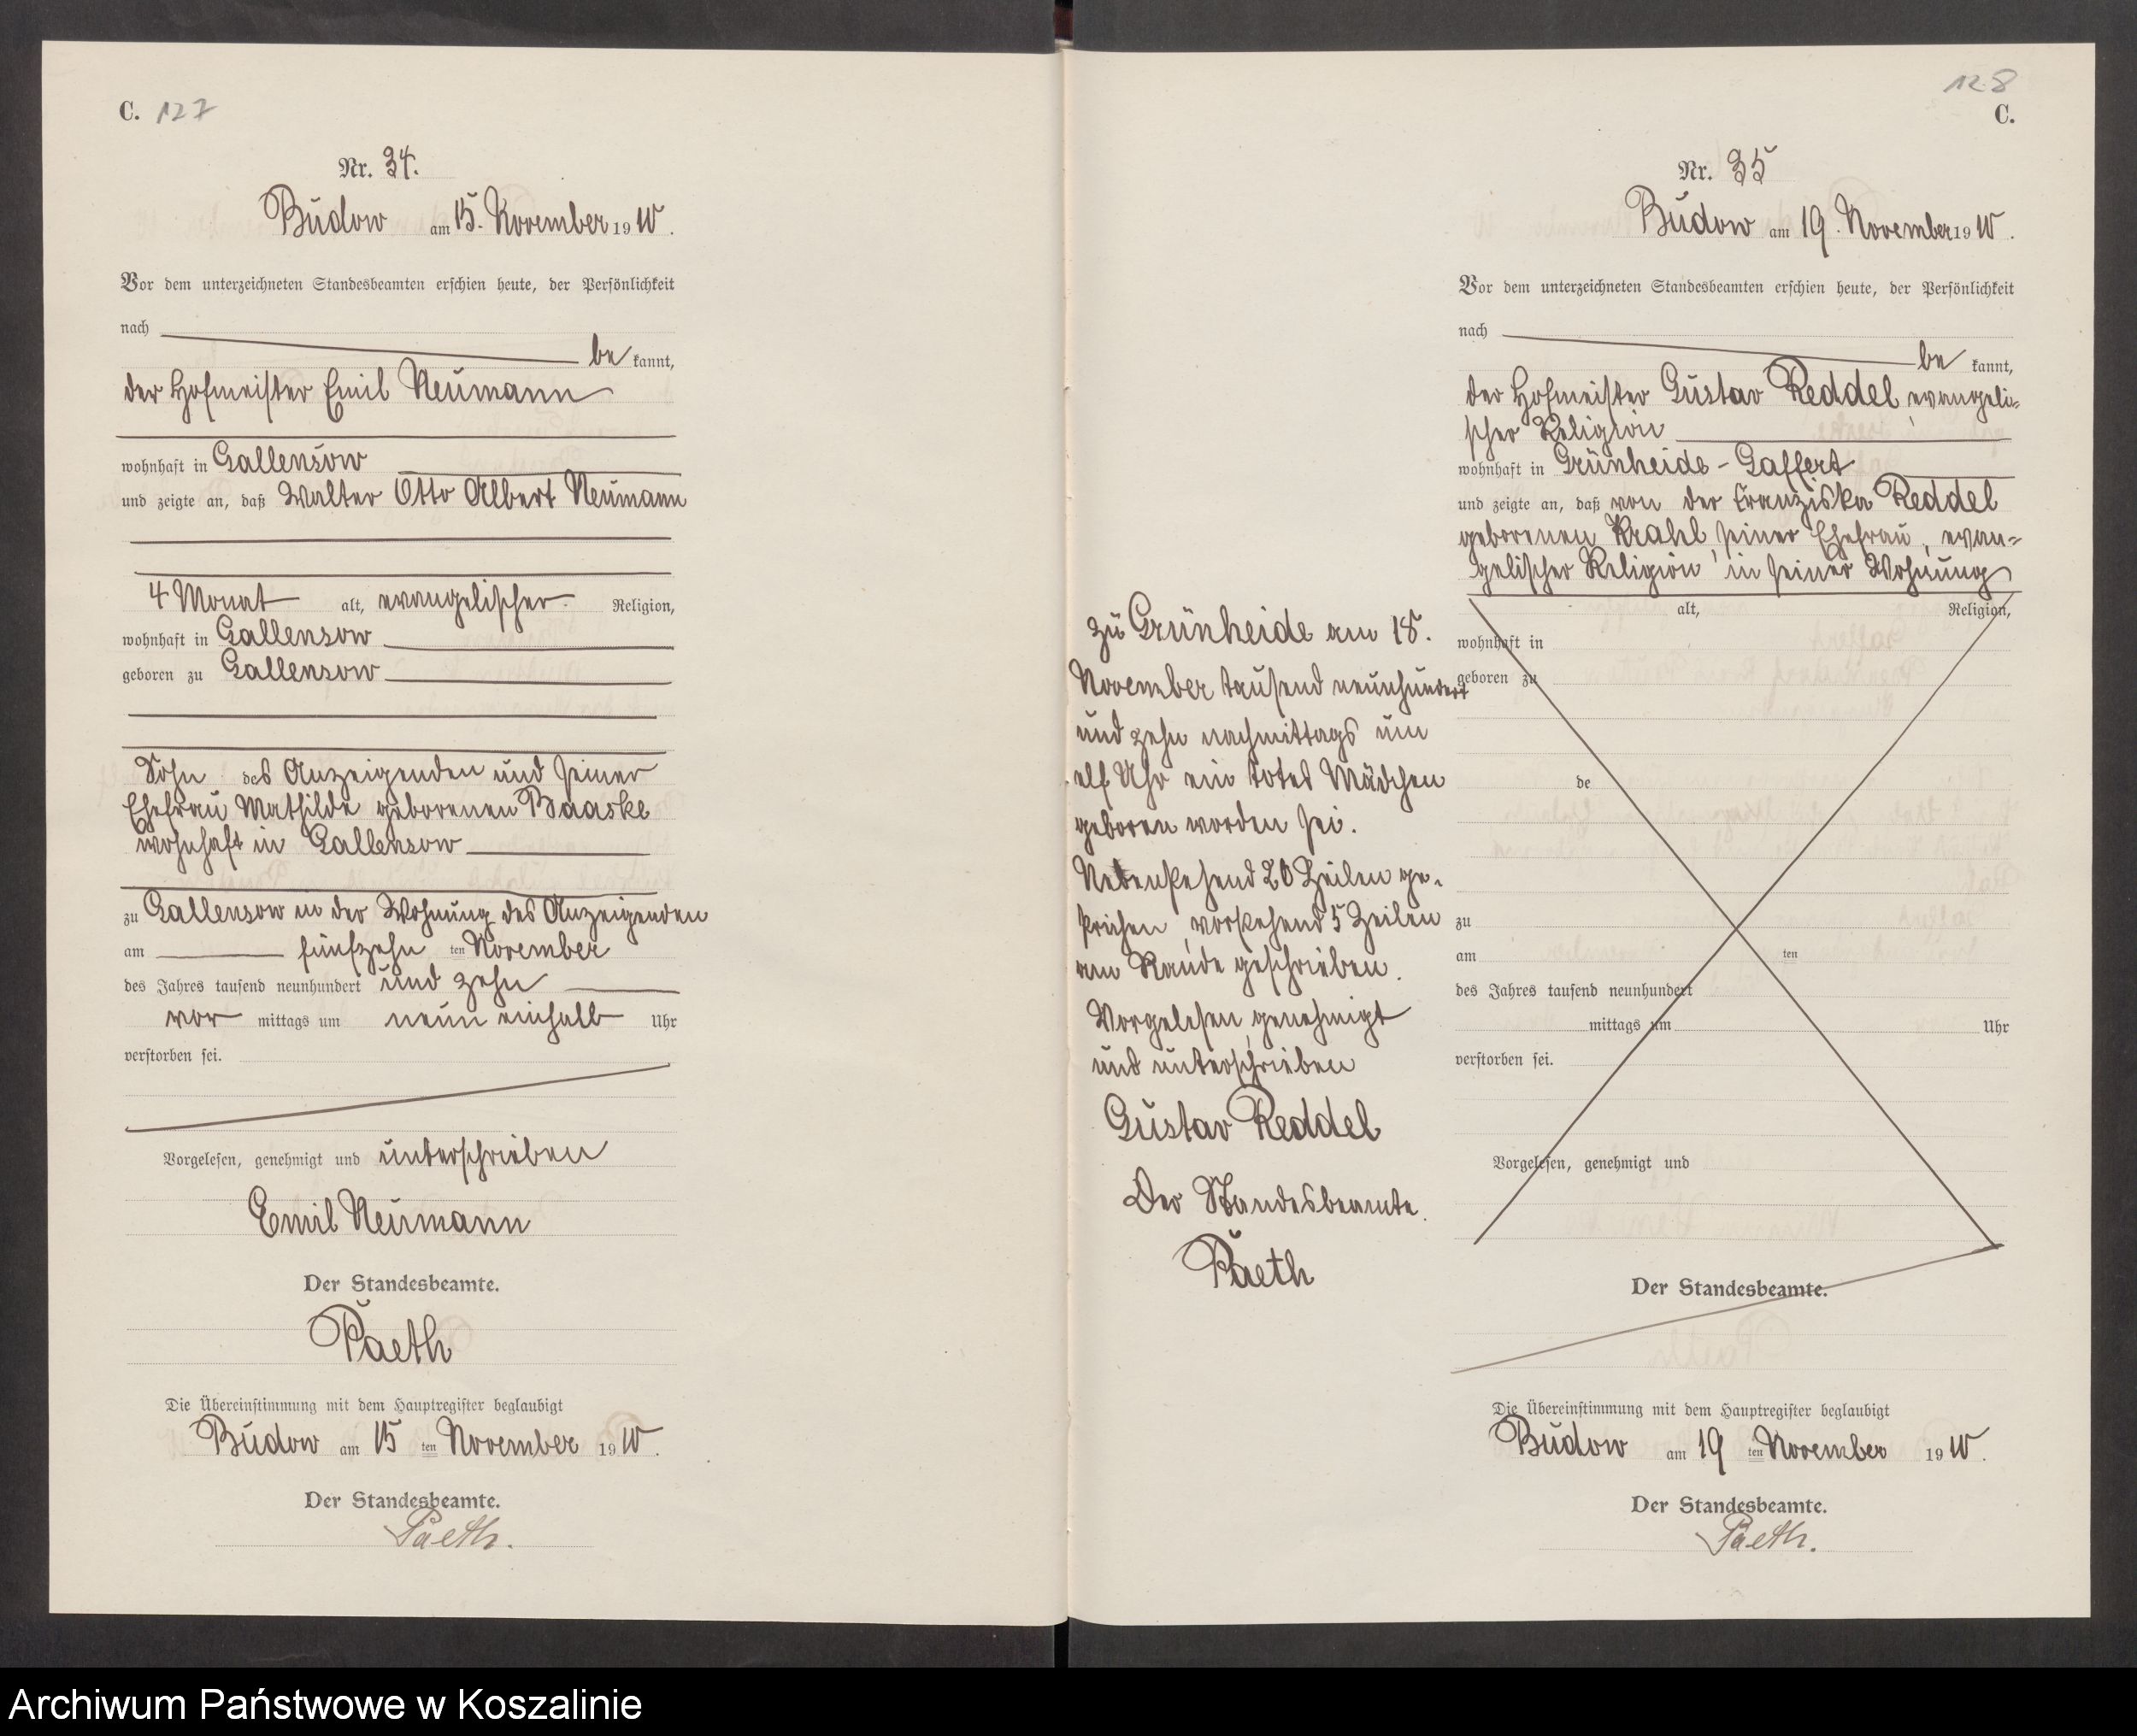 C. 127
Nr. 34.
Budow am 15. November 1910.
Vor dem unterzeichneten Standesbeamten erschien heute, der Persönlichkeit
nach
be kannt,
der Hofmeister Emil Neumann
wohnhaft in Gallensow
und zeigte an, daß Walter Otto Albert Neumann
4 Monat alt, evangelischer Religion,
wohnhaft in Gallensow
geboren zu Gallensow
Sohn des Anzeigenden und seiner
Ehefrau Mathilde geborenen Baaske
wohnhaft in Gallensow
zu Gallensow in der Wohnung des Anzeigenden
am fünfzehn ten November
des Jahres tausend neunhundert und zehn
vor mittags um neun einhalb Uhr
verstorben sei.
Vorgelesen, genehmigt und unterschrieben
Emil Neumann
Der Standesbeamte.
Paeth
Die Übereinstimmung mit dem Hauptregister beglaubigt
Budow am 15 ten November 1910.
Der Standesbeamte.
Paeth.
128
C.
Nr. 35
Budow am 19. November 1910.
Vor dem unterzeichneten Standesbeamten erschien heute, der Persönlichkeit
nach
be kannt,
der Hofmeister Gustav Reddel, evangeli-
scher Religion
wohnhaft in Grünheide-Gaffert
und zeigte an, daß von der Franziska Reddel
geborenen Krahl, seiner Ehefrau, evan-
gelischer Religion in seiner Wohnung
zu Grünheide am 18.
November tausend neunhundert
und zehn nachmittags um
elf Uhr ein totes Mädchen
geboren worden sei.
Nebenstehend 20 Zeilen ge-
strichen, vorstehend 5 Zeilen
am Rande geschrieben.
Vorgelesen, genehmigt
und unterschrieben
Gustav Reddel
Der Standesbeamte.
Paeth
alt, Religion,
wohnhaft in
geboren zu
de
zu
am ten
des Jahres tausend neunhundert
mittags um Uhr
verstorben sei.
Vorgelesen, genehmigt und
Der Standesbeamte.
Die Übereinstimmung mit dem Hauptregister beglaubigt
Budow am 19 ten November 1910.
Der Standesbeamte.
Paeth.
Archiwum Państwowe w Koszalinie